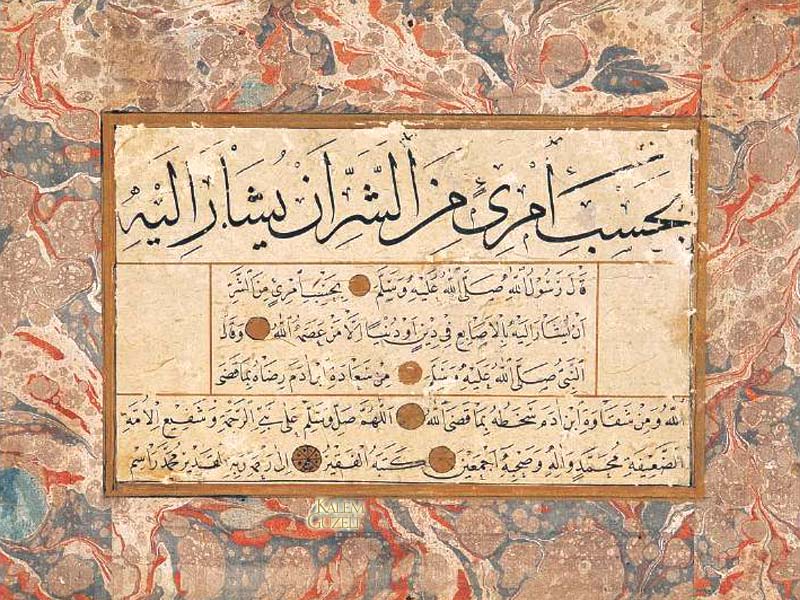 بِحَسْبِ امْرِئٍ مِنَ الشَّرِّ اَنْ يُشَارَ اِلَيْهِ
قال رسول الله صلى الله عليه وسلم بحسب امرئ من الشر
ان يشار اليه بالاصابع في دين او دنيا الا من عصمه الله وقال
النبي صلى الله عليه وسلم من سعادة ابن ادم رضاه بما قضى
الله ومن شقاوة ابن ادم سخطه بما قضى الله اللهم صل وسلم على نبي الرحمة وشفيع الامة
الضعيفة محمد واله وصحبه اجمعين كتبه الفقير الى رحمة ربه القدير محمد راسم
KALEM
GÜZELİ